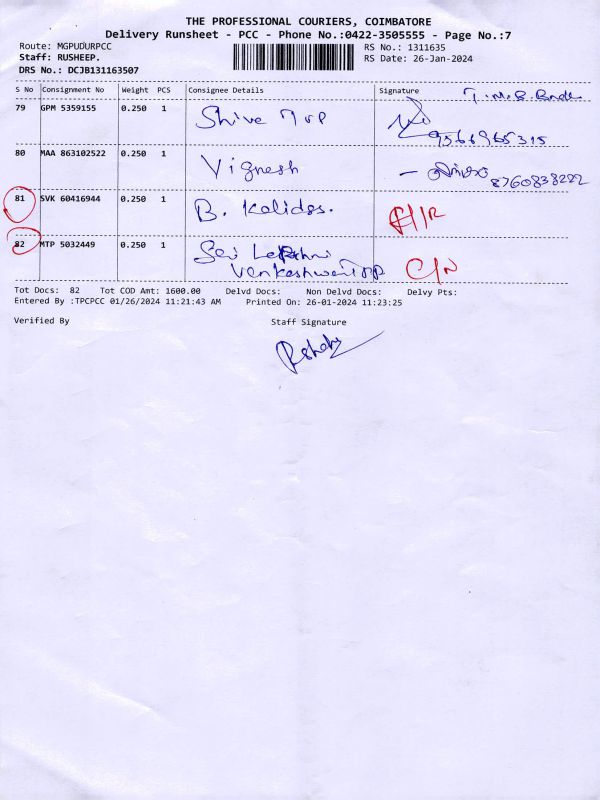 THE PROFESSIONAL COURIERS, COIMBATORE
Delivery Runsheet - PCC - Phone No.:0422-3505555 - Page No.:7
Route: MGPUDURPCC RS No.: 1311635
Staff: RUSHEEP. RS Date: 26-Jan-2024
DRS No.: DCJB131163507
S No Consignment No Weight PCS Consignee Details Signature
79 GPM 5359155 0.250 1 Shive 9566965315
80 MAA 863102522 0.250 1 Vignesh 8760838222
81 SVK 60416944 0.250 1 B. Kalidss.
82 MTP 5032449 0.250 1 Sri
C/N
Tot Docs: 82 Tot COD Amt: 1600.00 Delvd Docs: Non Delvd Docs: Delvy Pts:
Entered By :TPCPCC 01/26/2024 11:21:43 AM Printed On: 26-01-2024 11:23:25
Verified By Staff Signature